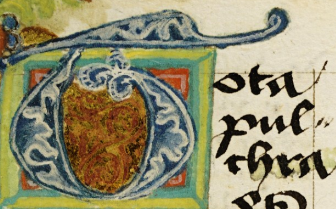 Tota
pul-
chra